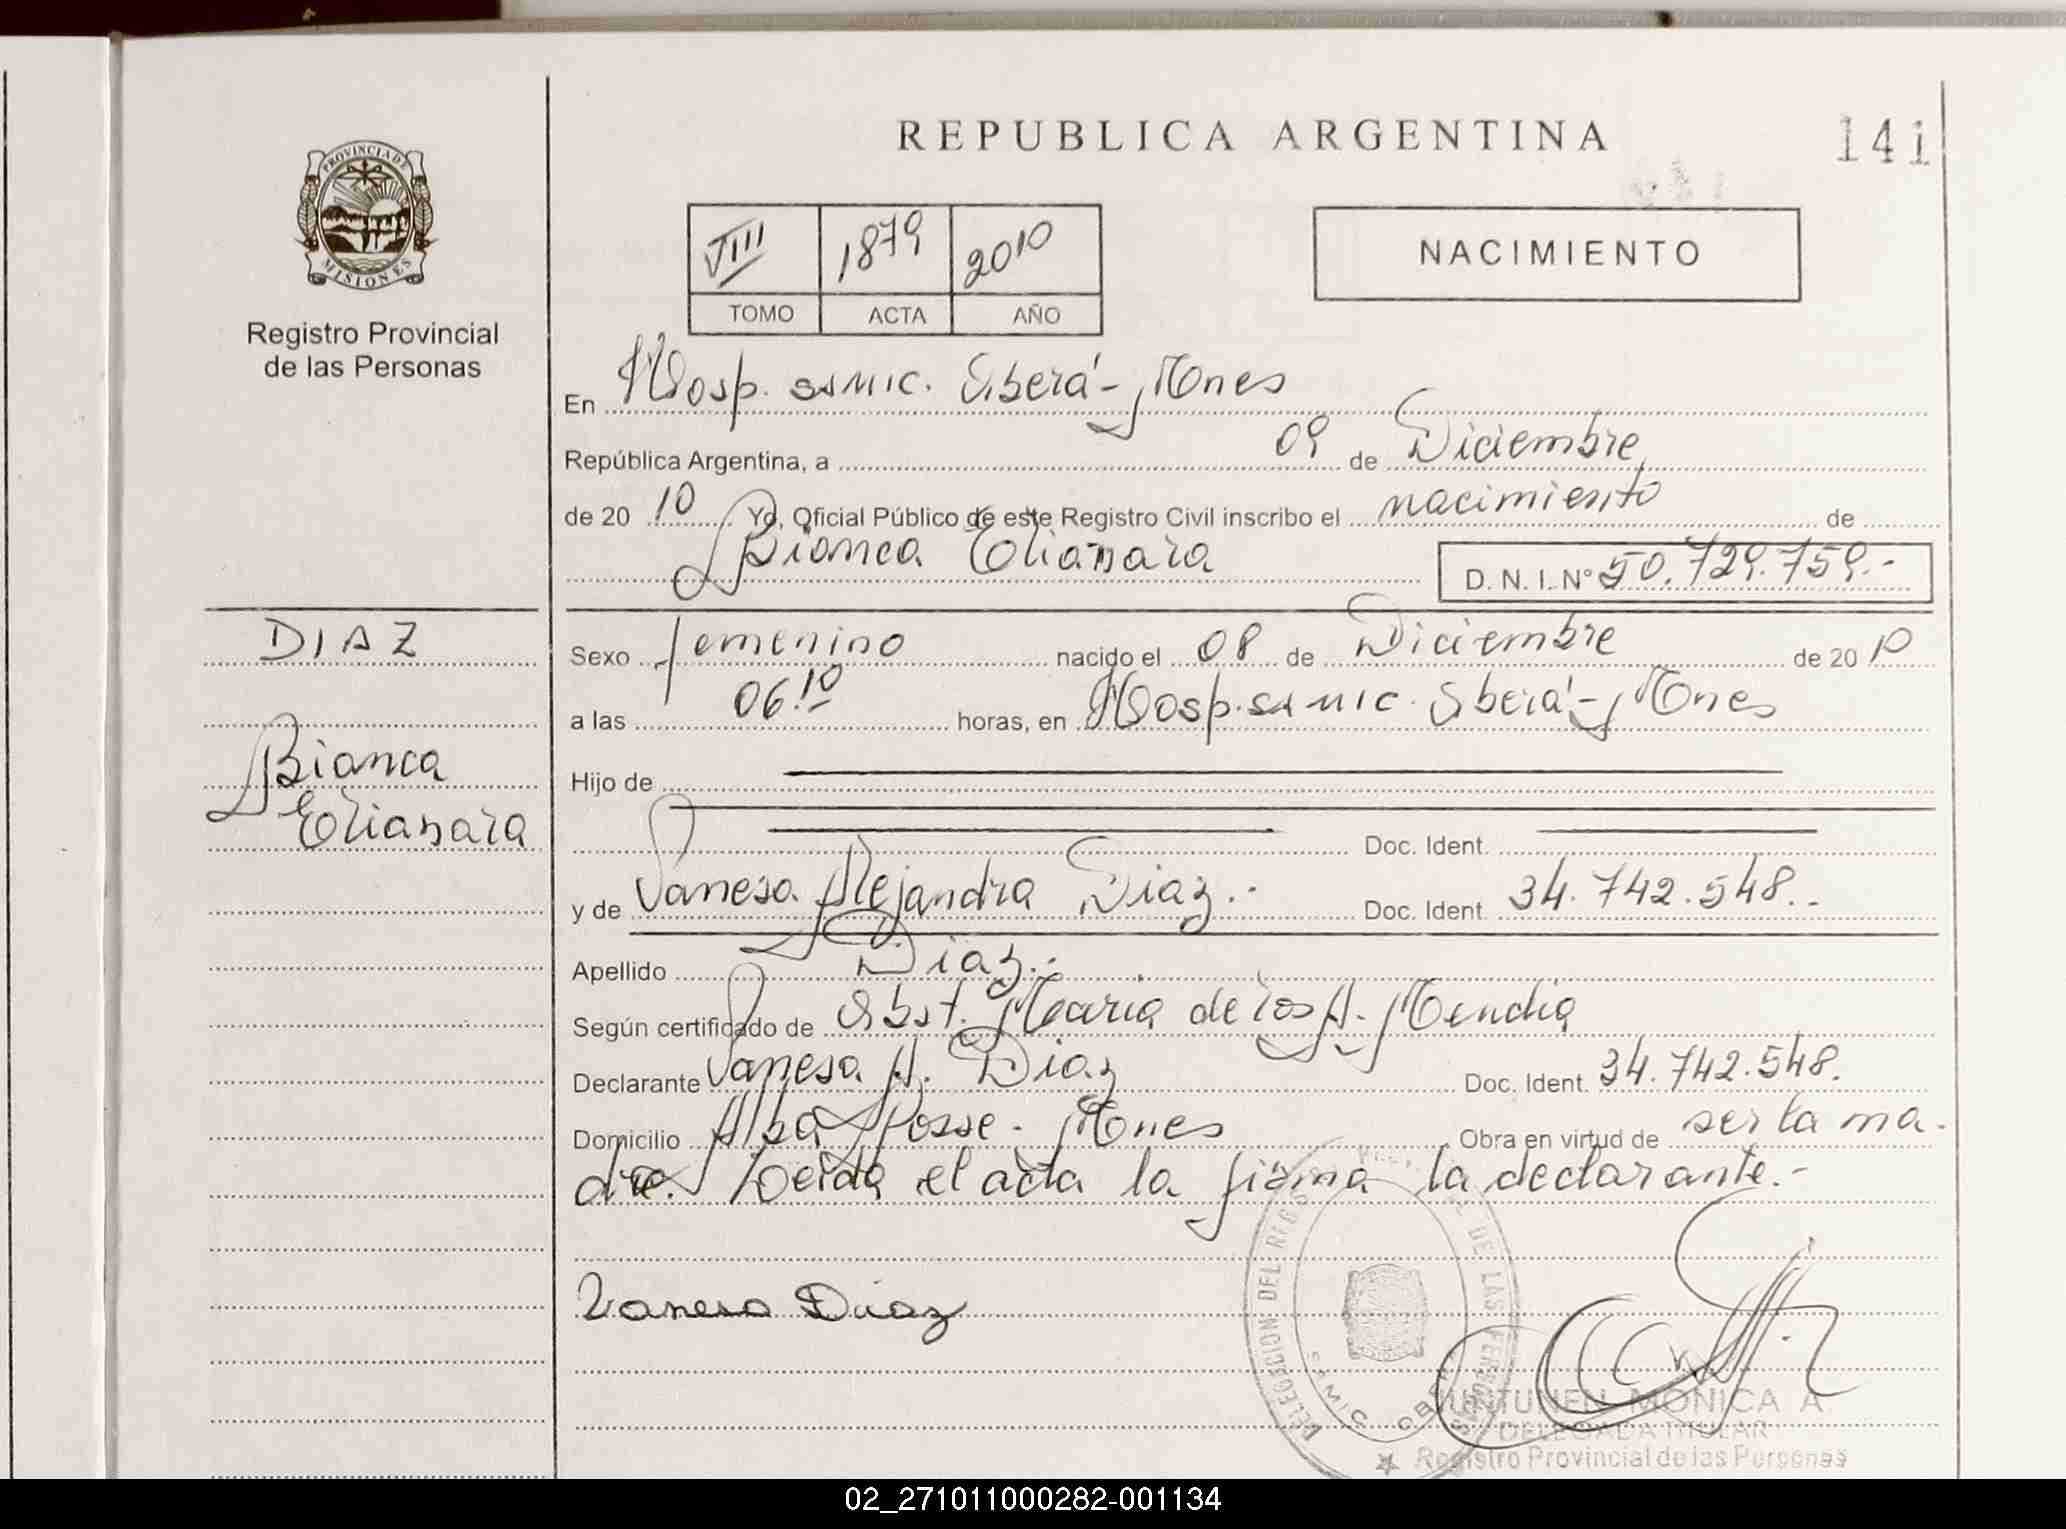 REPUBLICA ARGENTINA
141
PROVINCIA DE
MISIONES
Registro Provincial
de las Personas
VIII 1879 2010
TOMO ACTA AÑO
NACIMIENTO
En Hosp. SAMIC. Oberá - Mnes
República Argentina, a 09 de Diciembre
de 20 10 Yo, Oficial Público de este Registro Civil inscribo el nacimiento de
Bianca Elianara
D. N. I. Nº 50.729.759.-
DIAZ
Bianca
Elianara
Sexo femenino nacido el 08 de Diciembre de 20 10
a las 06.10 horas, en Hosp. SAMIC. Oberá - Mnes
Hijo de
Doc. Ident.
y de Vanesa Alejandra Diaz.- Doc. Ident. 34.742.548.-
Apellido Diaz.-
Según certificado de Obst. Maria de los A. Mendia
Declarante Vanesa A. Diaz Doc. Ident. 34.742.548.
Domicilio Alba Posse - Mnes Obra en virtud de ser la ma-
dre. Leida el acta la firma la declarante.-
Vanesa Diaz
DELEGACION DEL REGISTRO DE LAS PERSONAS
SAMIC OBERA
MONICA A
DELEGADA TITULAR
Registro Provincial de las Personas
02_271011000282-001134